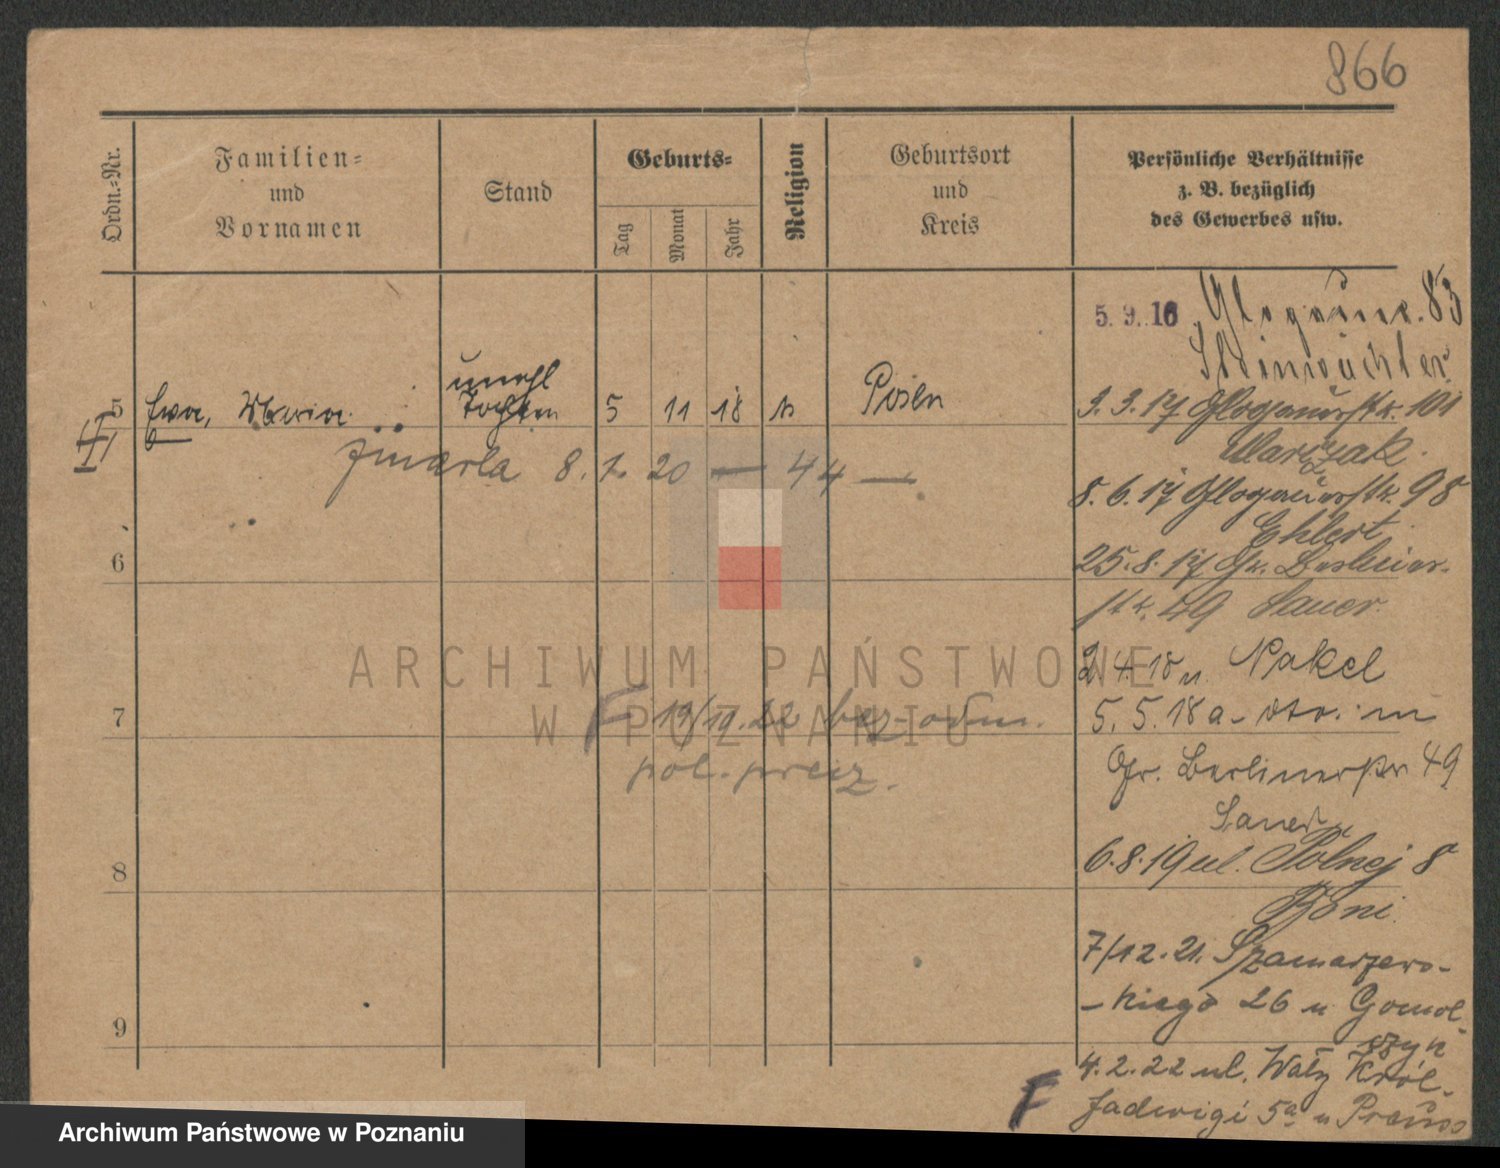 866
Ordn.-Nr.
Familien-
und
Vornamen
Stand
Geburts-
Tag
Monat
Jahr
Religion
Geburtsort
und
Kreis
Persönliche Verhältnisse
z. B. bezüglich
des Gewerbes usw.
5. 9. 16 83
Steinwächter
unehl
5 Ewa, Maria Tochter 5 11 18 Posen
II
zmarła 8. 1. 20 — 44 —
6
7
F 19/10.22 bez odm.
pol. preez.
8
9
3. 3. 17 Glogauerstr. 101
Warczak.
8. 6. 17 Glogauerstr. 98
Ehlert
25. 8. 17 Gr. Berliner-
str. 49 Sauer.
2 4. 18 n. Nakel
5. 5. 18 a.
Gr. Berlinerstr 49
Sauer
6. 8. 19 ul. Polnej 8
7/12. 21. Szamarzews-
-kiego 26 u Gomol-
szyk
4. 2. 22 ul. Wały Król.
F Jadwigi 5a u Prauss
ARCHIWUM PAŃSTWOWE
W POZNANIU
Archiwum Państwowe w Poznaniu